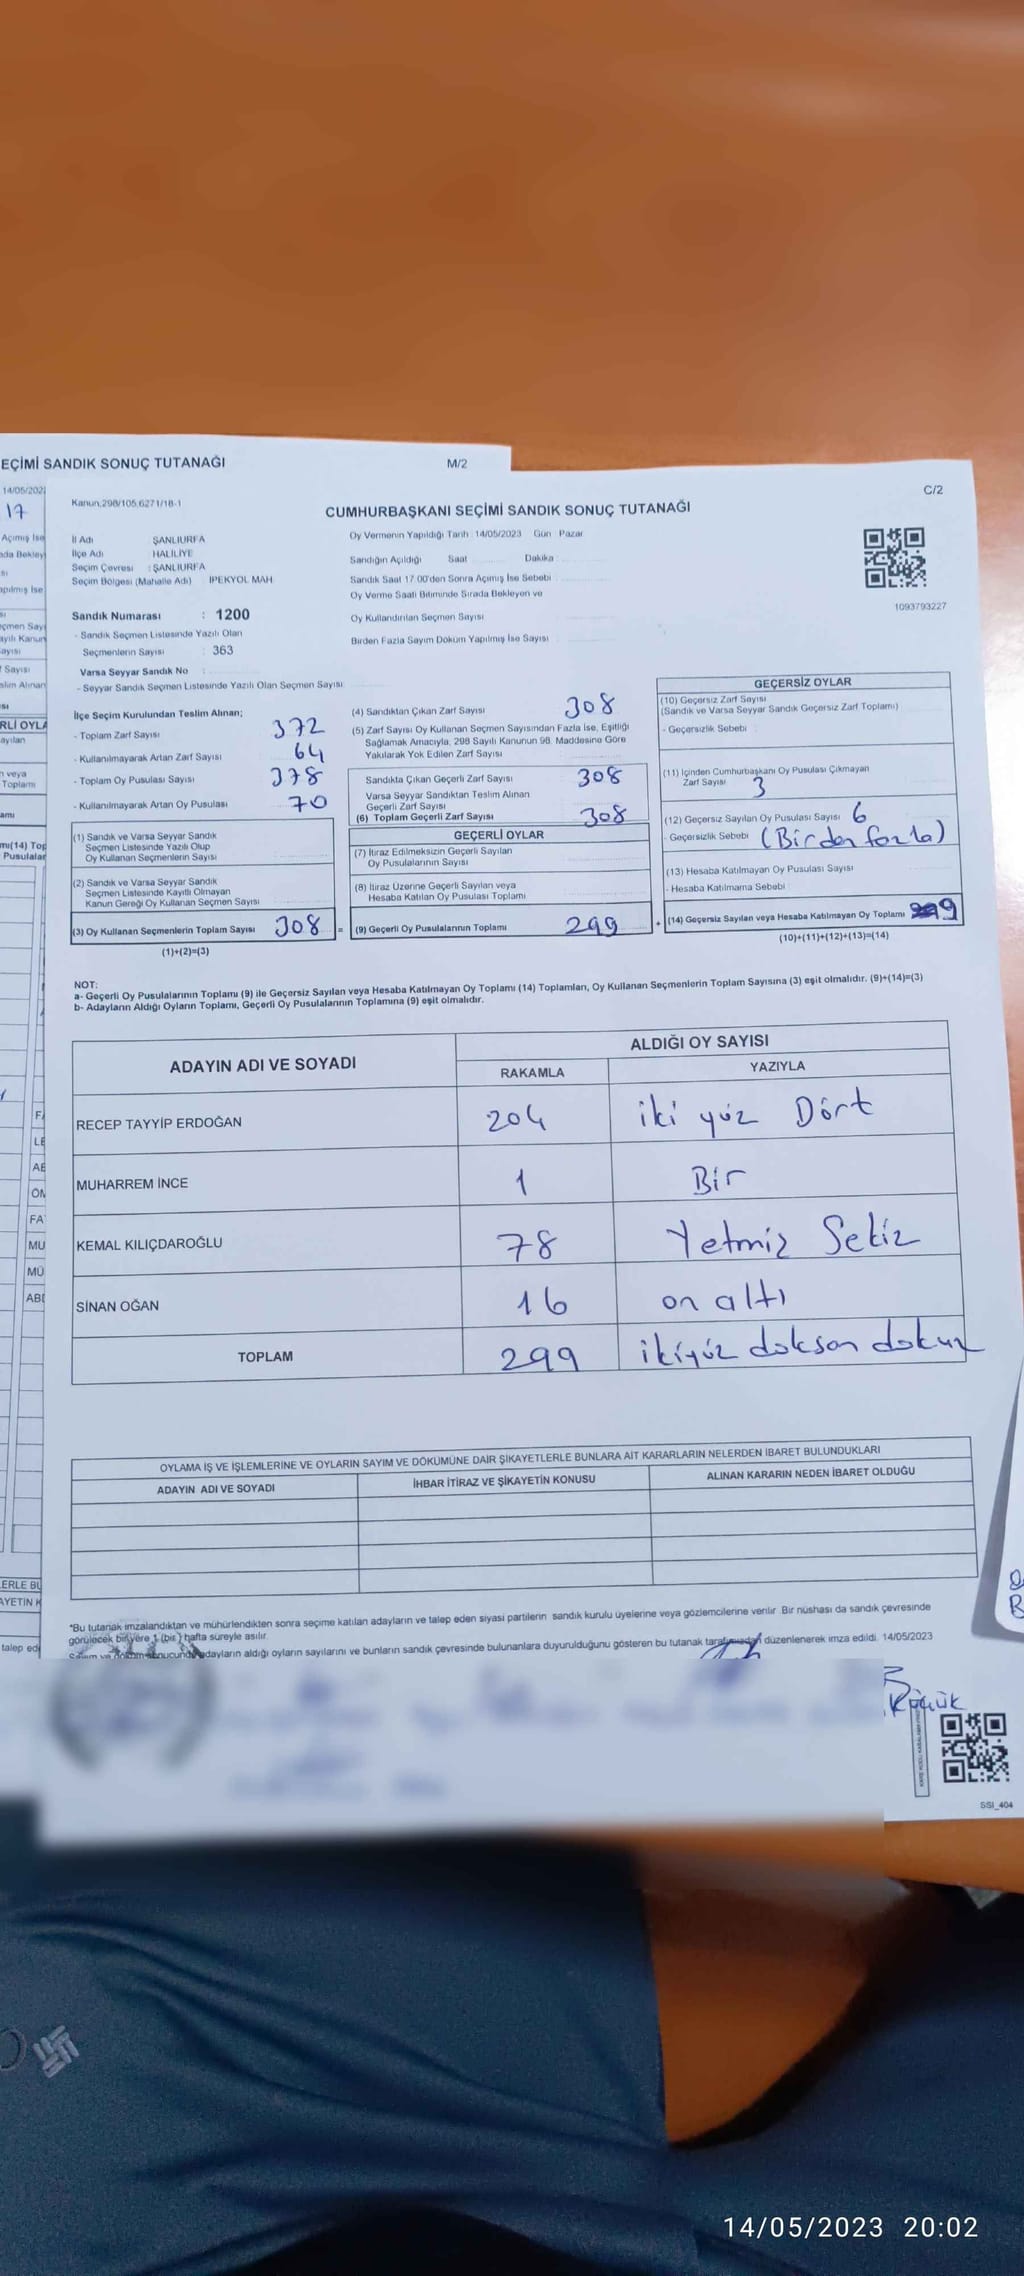 EÇİMİ SANDIK SONUÇ TUTANAĞI
M/2
14/05/202
17
Kanun:298/105,6271/18-1
C/2
CUMHURBAŞKANI SEÇİMİ SANDIK SONUÇ TUTANAĞI
İl Adı ŞANLIURFA
İlçe Adı HALİLİYE
Seçim Çevresi : ŞANLIURFA
Seçim Bölgesi (Mahalle Adı) İPEKYOL MAH
Sandık Numarası : 1200
- Sandık Seçmen Listesinde Yazılı Olan
Seçmenlerin Sayısı : 363
Varsa Seyyar Sandık No :
- Seyyar Sandık Seçmen Listesinde Yazılı Olan Seçmen Sayısı
Oy Vermenin Yapıldığı Tarih : 14/05/2023 Gün : Pazar
Sandığın Açıldığı Saat Dakika
Sandık Saat 17.00'den Sonra Açımış İse Sebebi
Oy Verme Saati Bitiminde Sırada Bekleyen ve
Oy Kullandırılan Seçmen Sayısı
Birden Fazla Sayım Döküm Yapılmış İse Sayısı
1093793227
İlçe Seçim Kurulundan Teslim Alınan;
- Toplam Zarf Sayısı 372
- Kullanılmayarak Artan Zarf Sayısı 64
- Toplam Oy Pusulası Sayısı 378
- Kullanılmayarak Artan Oy Pusulası 70
(1) Sandık ve Varsa Seyyar Sandık
Seçmen Listesinde Yazılı Olup
Oy Kullanan Seçmenlerin Sayısı
(2) Sandık ve Varsa Seyyar Sandık
Seçmen Listesinde Kayıtlı Olmayan
Kanun Gereği Oy Kullanan Seçmen Sayısı
(3) Oy Kullanan Seçmenlerin Toplam Sayısı 308 =
(1)+(2)=(3)
(4) Sandıktan Çıkan Zarf Sayısı 308
(5) Zarf Sayısı Oy Kullanan Seçmen Sayısından Fazla İse, Eşitliği
Sağlamak Amacıyla, 298 Sayılı Kanunun 98. Maddesine Göre
Yakılarak Yok Edilen Zarf Sayısı
Sandıkta Çıkan Geçerli Zarf Sayısı 308
Varsa Seyyar Sandıktan Teslim Alınan
Geçerli Zarf Sayısı
(6) Toplam Geçerli Zarf Sayısı 308
GEÇERLİ OYLAR
(7) İtiraz Edilmeksizin Geçerli Sayılan
Oy Pusulalarının Sayısı
(8) İtiraz Üzerine Geçerli Sayılan veya
Hesaba Katılan Oy Pusulası Toplamı
(9) Geçerli Oy Pusulalarının Toplamı 299 +
GEÇERSİZ OYLAR
(10) Geçersiz Zarf Sayısı
(Sandık ve Varsa Seyyar Sandık Geçersiz Zarf Toplamı)
- Geçersizlik Sebebi
(11) İçinden Cumhurbaşkanı Oy Pusulası Çıkmayan
Zarf Sayısı 3
(12) Geçersiz Sayılan Oy Pusulası Sayısı 6
- Geçersizlik Sebebi (Birden fazla)
(13) Hesaba Katılmayan Oy Pusulası Sayısı
- Hesaba Katılmama Sebebi
(14) Geçersiz Sayılan veya Hesaba Katılmayan Oy Toplamı 9
(10)+(11)+(12)+(13)=(14)
NOT:
a- Geçerli Oy Pusulalarının Toplamı (9) ile Geçersiz Sayılan veya Hesaba Katılmayan Oy Toplamı (14) Toplamları, Oy Kullanan Seçmenlerin Toplam Sayısına (3) eşit olmalıdır. (9)+(14)=(3)
b- Adayların Aldığı Oyların Toplamı, Geçerli Oy Pusulalarının Toplamına (9) eşit olmalıdır.
ADAYIN ADI VE SOYADI
ALDIĞI OY SAYISI
RAKAMLA YAZIYLA
RECEP TAYYİP ERDOĞAN 204 iki yüz Dört
MUHARREM İNCE 1 Bir
KEMAL KILIÇDAROĞLU 78 Yetmiş Sekiz
SİNAN OĞAN 16 on altı
TOPLAM 299 ikiyüz doksan dokuz
OYLAMA İŞ VE İŞLEMLERİNE VE OYLARIN SAYIM VE DÖKÜMÜNE DAİR ŞİKAYETLERLE BUNLARA AİT KARARLARIN NELERDEN İBARET BULUNDUKLARI
ADAYIN ADI VE SOYADI İHBAR İTİRAZ VE ŞİKAYETİN KONUSU ALINAN KARARIN NEDEN İBARET OLDUĞU
*Bu tutanak imzalandıktan ve mühürlendikten sonra seçime katılan adayların ve talep eden siyasi partilerin sandık kurulu üyelerine veya gözlemcilerine verilir. Bir nüshası da sandık çevresinde
görülecek bir yere 1 (bir) hafta süreyle asılır.
adayların aldığı oyların sayılarını ve bunların sandık çevresinde bulunanlara duyurulduğunu gösteren bu tutanak tarafımızdan düzenlenerek imza edildi. 14/05/2023
Küçük
SSI_404
14/05/2023 20:02